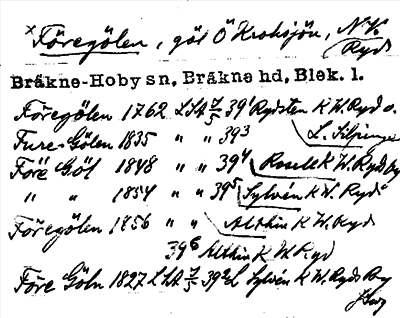 xFöregölen, göl Ö Kroksjön, N.V. Ryd
Bräkne-Hoby sn, Bräkne hd, Blek. l.
Föregölen 1762 LSA 7/5 39¹ Rydsten K W. Ryd o. L. Siljinge
Fure-Gölen 1835 " " 39³
Före Göl 1848 " " 39⁴ K W. Ryd by
" " 1854 " " 39⁵ Sylvén K W. Ryd
Föregölen 1856 " " Althin K W. Ryd
39⁶ Althin K W. Ryd
Före Göln 1827 LSA 7/5 39² L Sylvén K W. Ryds